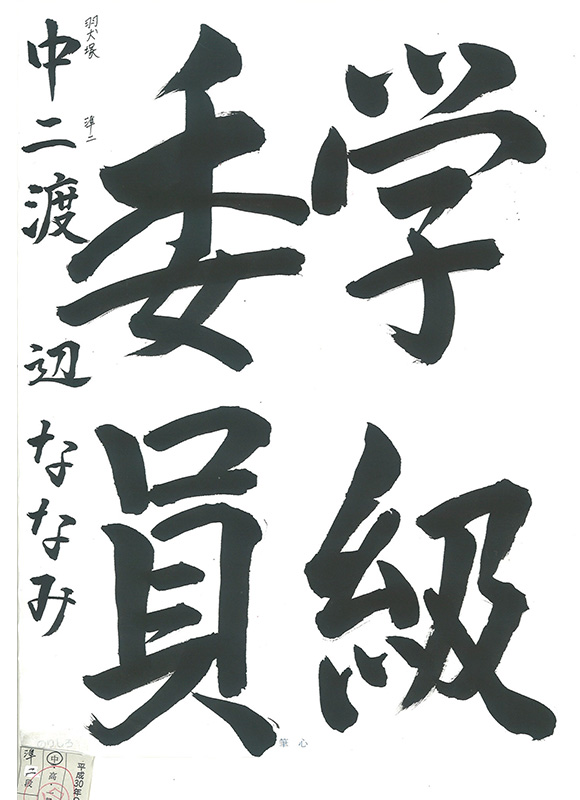 学級
委員
中二渡辺ななみ
羽犬塚 準二
筆心
のりしろ
平成30年
中・高・
準二段